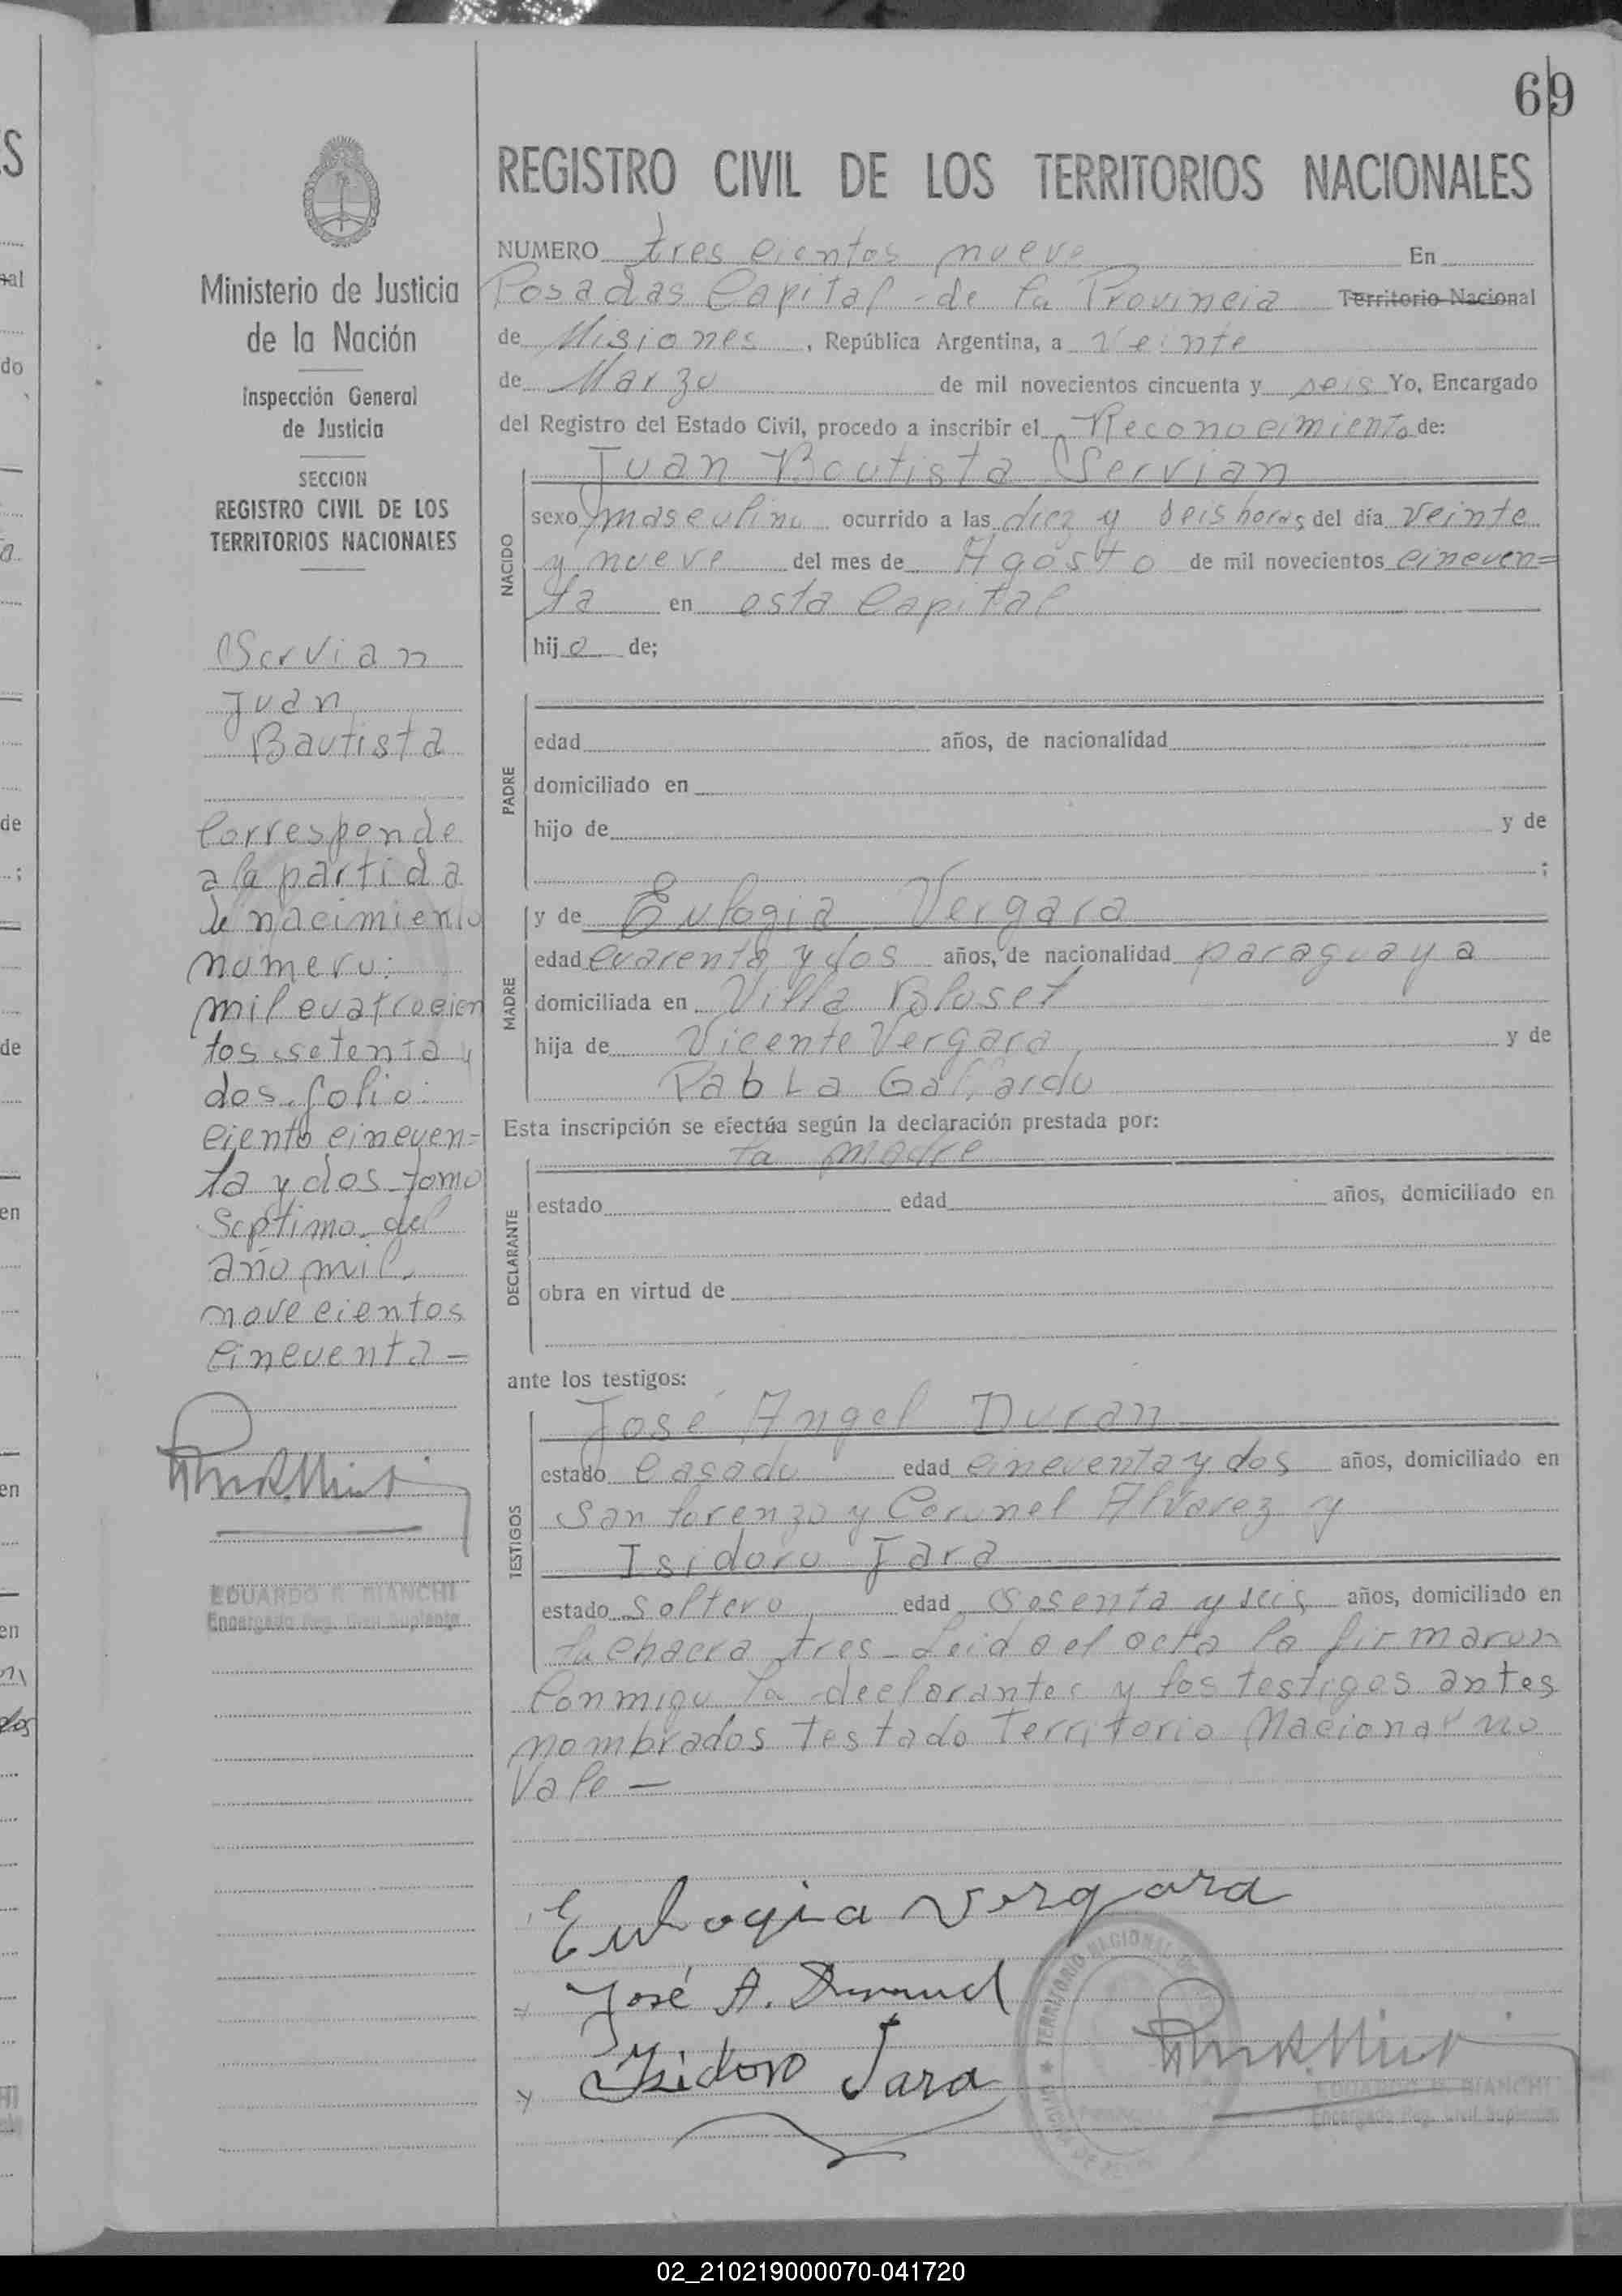 69
REGISTRO CIVIL DE LOS TERRITORIOS NACIONALES
Ministerio de Justicia
de la Nación
Inspección General
de Justicia
SECCION
REGISTRO CIVIL DE LOS
TERRITORIOS NACIONALES
Servian
Juan
Bautista
Corresponde
a la partida
de nacimiento
numero:
mil cuatrocien
tos setenta y
dos folio:
ciento cincuen=
ta y dos tomo
septimo del
año mil
novecientos
cincuenta –
EDUARDO R. BIANCHI
Encargado Reg. Civil Suplente
NUMERO tres cientos nueve En
Posadas Capital de la Provincia Territorio Nacional
de Misiones, República Argentina, a veinte
de Marzo de mil novecientos cincuenta y seis Yo, Encargado
del Registro del Estado Civil, procedo a inscribir el Reconocimiento de:
Juan Bautista Servian
NACIDO
sexo masculino ocurrido a las diez y seis horas del día veinte
y nueve del mes de Agosto de mil novecientos cincuen=
ta en esta Capital
hijo de;
PADRE
edad años, de nacionalidad
domiciliado en
hijo de y de
;
MADRE
y de Eulogia Vergara
edad cuarenta y dos años, de nacionalidad paraguaya
domiciliada en Villa Bloset
hija de Vicente Vergara y de
Pabla Gallardo
Esta inscripción se efectúa según la declaración prestada por:
la madre
DECLARANTE
estado edad años, domiciliado en
obra en virtud de
ante los testigos:
TESTIGOS
José Angel Duran
estado casado edad cincuenta y dos años, domiciliado en
San Lorenzo y Coronel Alvarez y
Isidoro Jara
estado soltero edad sesenta y seis años, domiciliado en
la chacra tres – Leida el acta la firmaron
conmigo la declarantes y los testigos antes
nombrados testado Territorio Nacional no
Vale –
Eulogia Vergara
José A. Durand
Isidoro Jara
TERRITORIO NACIONAL
EDUARDO R. BIANCHI
Encargado Reg. Civil Suplente
02_210219000070-041720